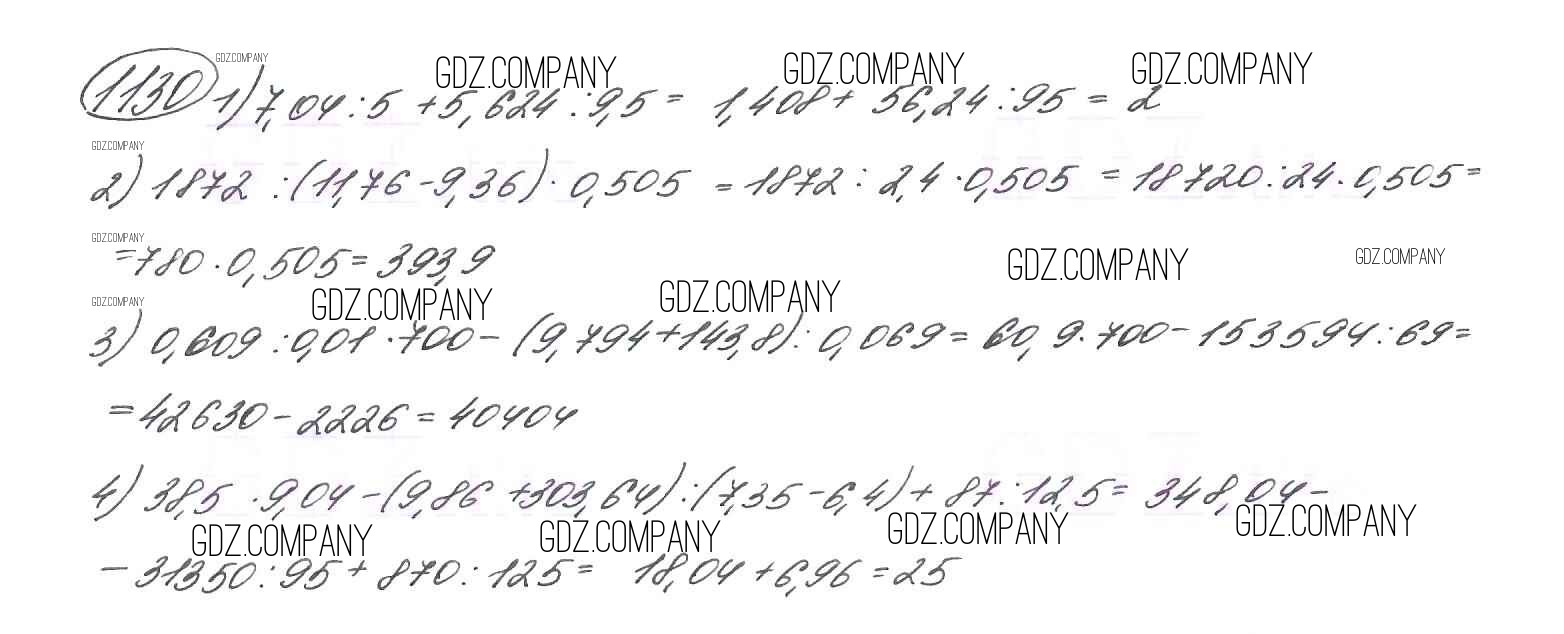 GDZ.COMPANY
GDZ.COMPANY GDZ.COMPANY GDZ.COMPANY
1130 1) 7,04 : 5 + 5,624 : 9,5 = 1,408 + 56,24 : 95 = 2
GDZ.COMPANY
2) 1872 : (11,76 - 9,36) · 0,505 = 1872 : 2,4 · 0,505 = 18720 : 24 · 0,505 =
GDZ.COMPANY
= 780 · 0,505 = 393,9
GDZ.COMPANY GDZ.COMPANY
GDZ.COMPANY GDZ.COMPANY GDZ.COMPANY
3) 0,609 : 0,01 · 700 - (9,794 + 143,8) : 0,069 = 60,9 · 700 - 153594 : 69 =
= 42630 - 2226 = 40404
4) 38,5 · 9,04 - (9,86 + 303,64) : (7,35 - 6,4) + 87 : 12,5 = 348,04 -
GDZ.COMPANY GDZ.COMPANY GDZ.COMPANY GDZ.COMPANY
- 31350 : 95 + 870 : 125 = 18,04 + 6,96 = 25